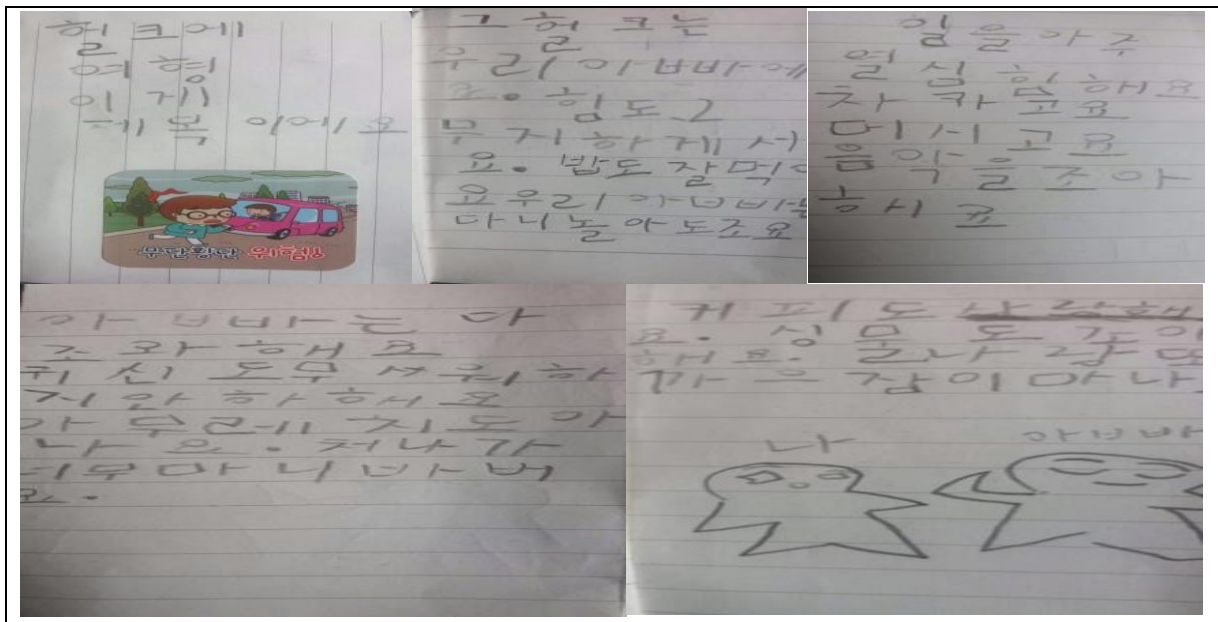 헐크에
여행
이게
제목 이에요
무단횡단 위험!
그 헐크는
우리 아빠에
요. 힘도 그
무지하게 서
요. 밥도 잘 먹어
요 우리 아빠는
다니 놀아 도 조요
일을 아주
열심힘 해요
차카고요
머시고요
음악을 조아
하시
아빠는 다
조와 해요
귀신도 무서워하
지 안하 해요
아무러치도 아
나요. 저나가
너무 마니 바
요.
커피도 사랑해
요. 성문도 조아
해요. 글나랑 또
까으 점이 마나
나
아빠